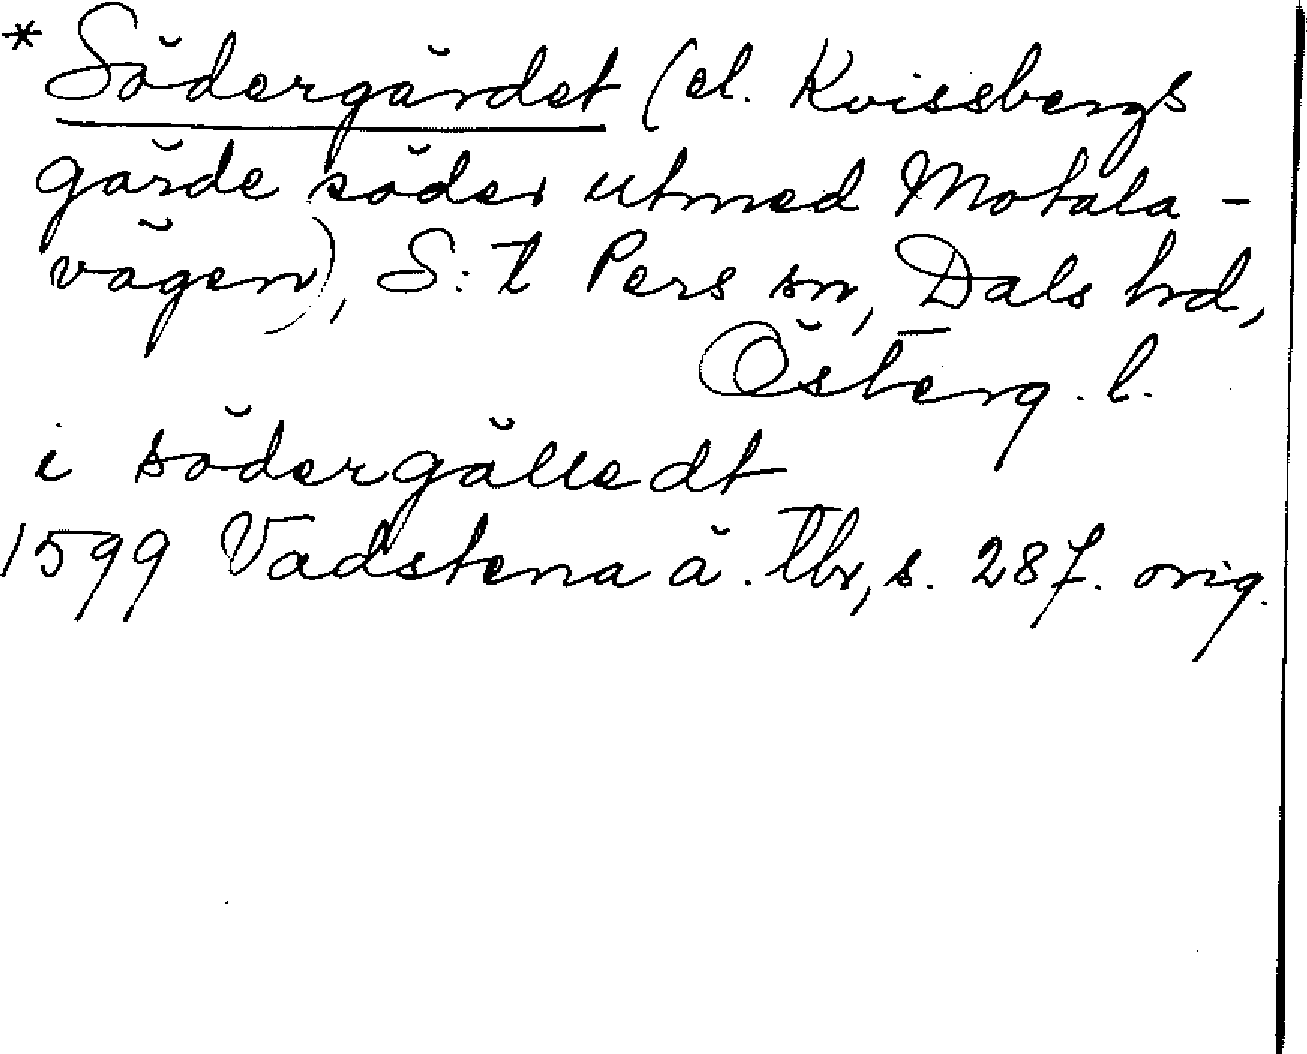 * Södergärdet (el. Kvissbergs
gärde söder utmed Motala-
vägen), S:t Pers sn, Dals hd,
Österg. l.
i södergälledt
1599 Vadstena ä. tbr, s. 287. orig.